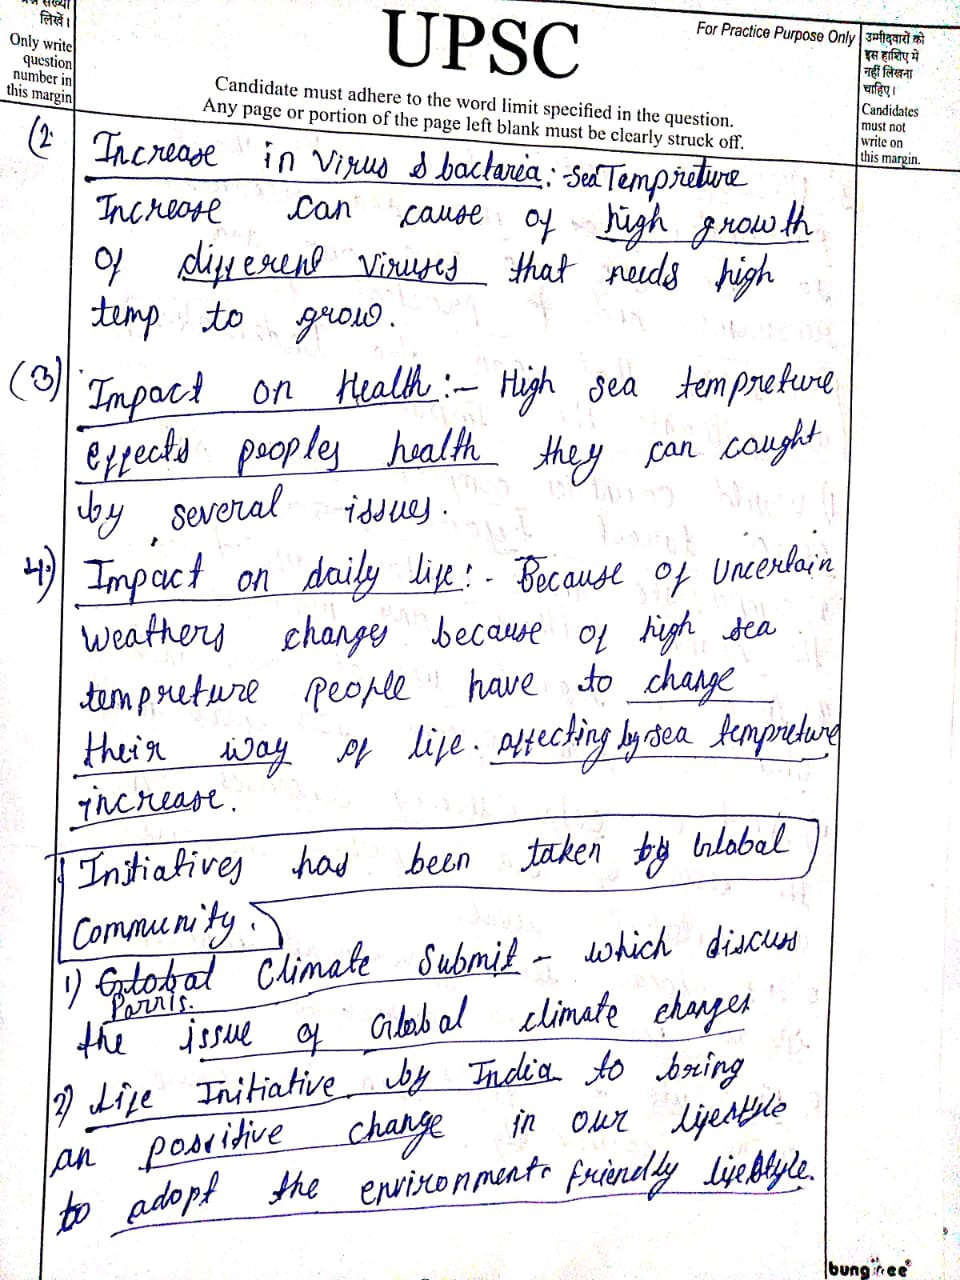 संख्या
लिखें।
Only write
question
number in
this margin
UPSC
For Practice Purpose Only
Candidate must adhere to the word limit specified in the question.
Any page or portion of the page left blank must be clearly struck off.
उम्मीदवारों को
इस हाशिए में
नहीं लिखना
चाहिए।
Candidates
must not
write on
this margin.
(2. Increase in Virus & bactaria:- Sea Tempreture
Increase can cause of high growth
of different viruses that needs high
temp to grow.
(3) Impact on Health:- High sea tempreture
effects peoples health they can caught
by several issues.
4.) Impact on daily life:- Because of Uncertain
weathers changes because of high sea
tempreture people have to change
their way of life. affecting by sea tempreture
increase.
Initiatives has been taken by Global
Community.
1) Global Climate Submit - which discuss
Parris.
the issue of Global climate changes
2) Life Initiative by India to bring
an possitive change in our lifestyle
to adopt the environment friendly lifestyle.